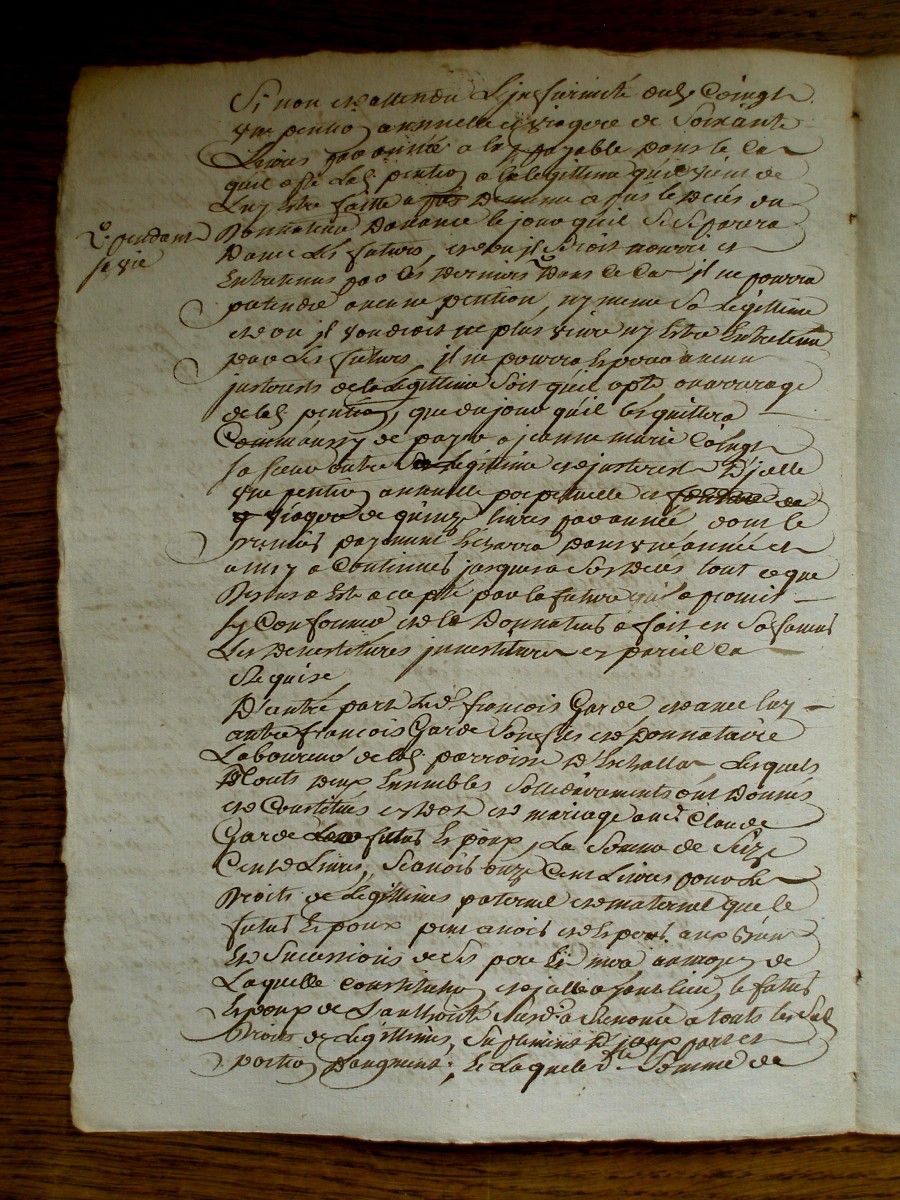 Si non et attendu L'jnfirmité dud. Coingt
une pention annuelle et viagere de Soixante
Livres par année a luy payable dans le Ca
qu'il opte Lad. pention a la legittime qui vient de
Luy Estre faitte dememe apres le Décés du
Donnateur Davance le jour qu'il Se Separera
Davec Les futurs, et ou jl Seroit nourri et
Entretenus par les Derniers dans ce Ca jl ne pourra
pretendre aucune pention ny meme Sa Legittime
et ou jl voudroit ne plus vivre ny Estre Entretenu
par Les futurs, jl ne pourra Exiger aucun
jnterests de la Legittime Soit qu'il opte
de lad. pention, que du jour qu'il les quittera
Comm'aussy de payer a jeanne marie Coingt
Sa Soeur outre Sa Legittime et jnterest D'jcelle
une pention annuelle
viagere de quinze livres par année dont le
premier payement Echerra dans une année et
ainsy a Continuer jusques a Son Décés tout ce que
Dessus a Esté accepté par la future qui a promis
Sy Conformer et le Donnateur a fait en Sa faveur
Les Devestitures jnvestitures en pareil Ca
Requise
2°. pendant
Sa vie
D'autre part led. Sr. françois Garde et avec luy
autre françois Garde Son fils et Donnataire
Laboureur de lad. parroisse D'Echallas Lesquels
Touts deux Ensembles Sollidairements ont Donnés
et Constitués en Dot et mariage aud. Claude
Garde futur Epoux, La Somme de Seize
Cents Livres, Scavoir onze Cent Livres pour Les
Droits de Légittimes paternel et maternel que le
futur Epoux peut avoir et Esperer aux Biens
et Successions de Ses pere et mere au moyen de
Laquelle Constitution le futur
Epoux de L'authorité Susd. a Renoncé a touts les Sud.
Droits de Légittimes, Supplement D'jceux part et
portion D'augment; Et Laquelle d. Somme de